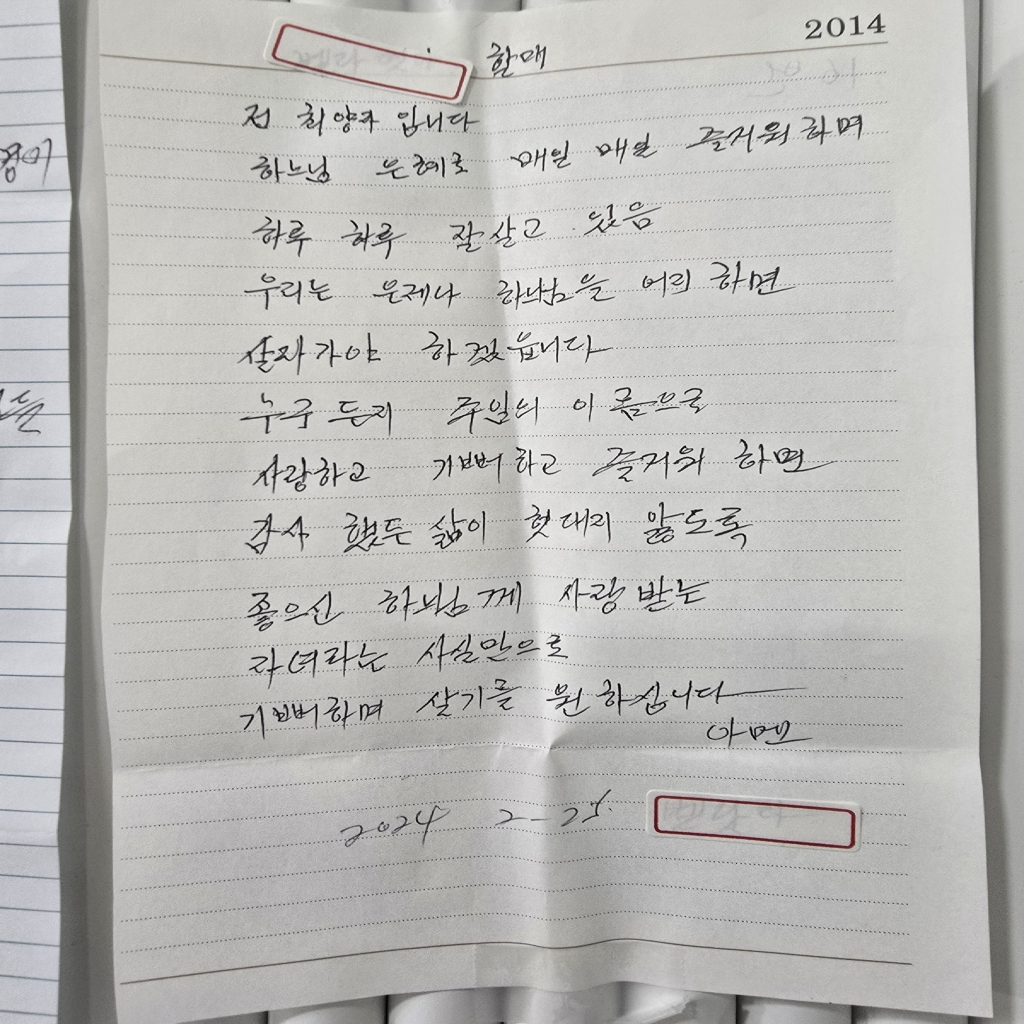 2014
할매
전 최양자 입니다
하느님 은혜로 매일 매일 즐거워하며
하루 하루 잘살고 있음
우리는 은제나 하나님을 어리 하면
살자가야 하겠읍니다
누구 든지 주일의 이름으로
사랑하고 기뻐하고 즐거워 하면
감사 했든 삶이 헛대지 않도록
좋으신 하늬님께 사랑 받는
자녀라는 사실만으로
기뻐하며 살기를 원하십니다
아멘
2024 2-25.